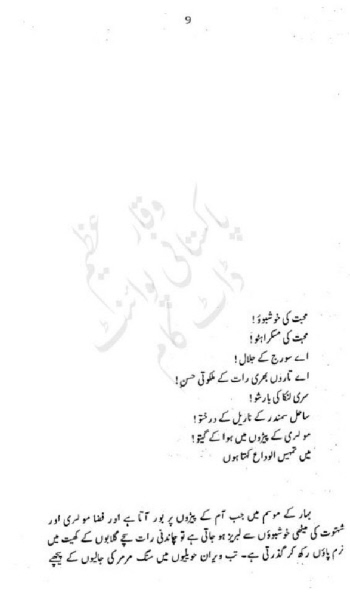 9
وقار عظیم
پاکستانی پوائنٹ
ڈاٹ کام
محبت کی خوشبوؤ!
محبت کی مسکراہٹو!
اے سورج کے جلال!
اے تاروں بھری رات کے ملکوتی حسن!
سری لنکا کی بارشو!
ساحل سمندر کے ناریل کے درختو!
مولسری کے پیڑوں میں ہوا کے گیتو!
میں تمہیں الوداع کہتا ہوں
بہار کے موسم میں جب آم کے پیڑوں پر بور آتا ہے اور فضا مولسری اور
شہتوت کی میٹھی خوشبوؤں سے لبریز ہو جاتی ہے تو چاندنی رات سچے گلابوں کے کھیت میں
نرم پاؤں رکھ کر گذرتی ہے۔ تب ویران حویلیوں میں سنگ مرمر کی جالیوں کے پیچھے